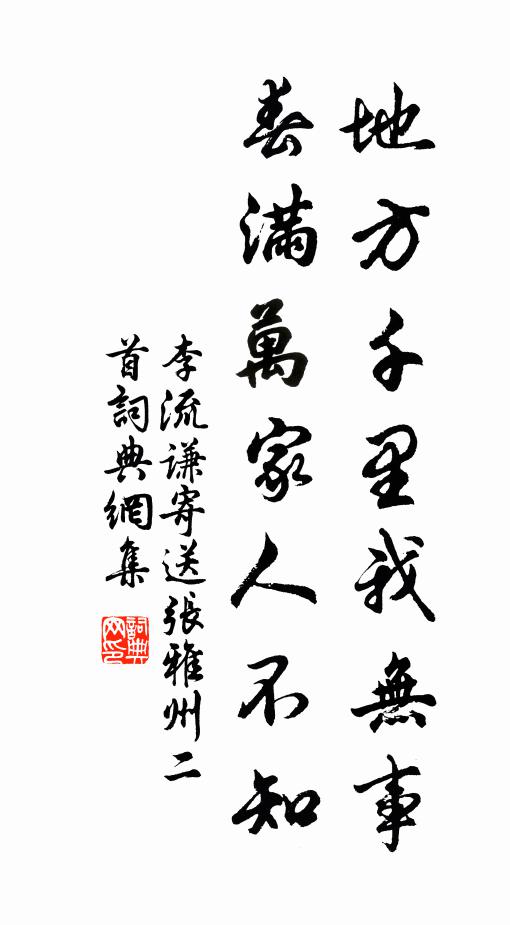 地方千里我無事
春滿萬家人不知
李流謙寄送張雅州二
首詞典網集
詞典
网印